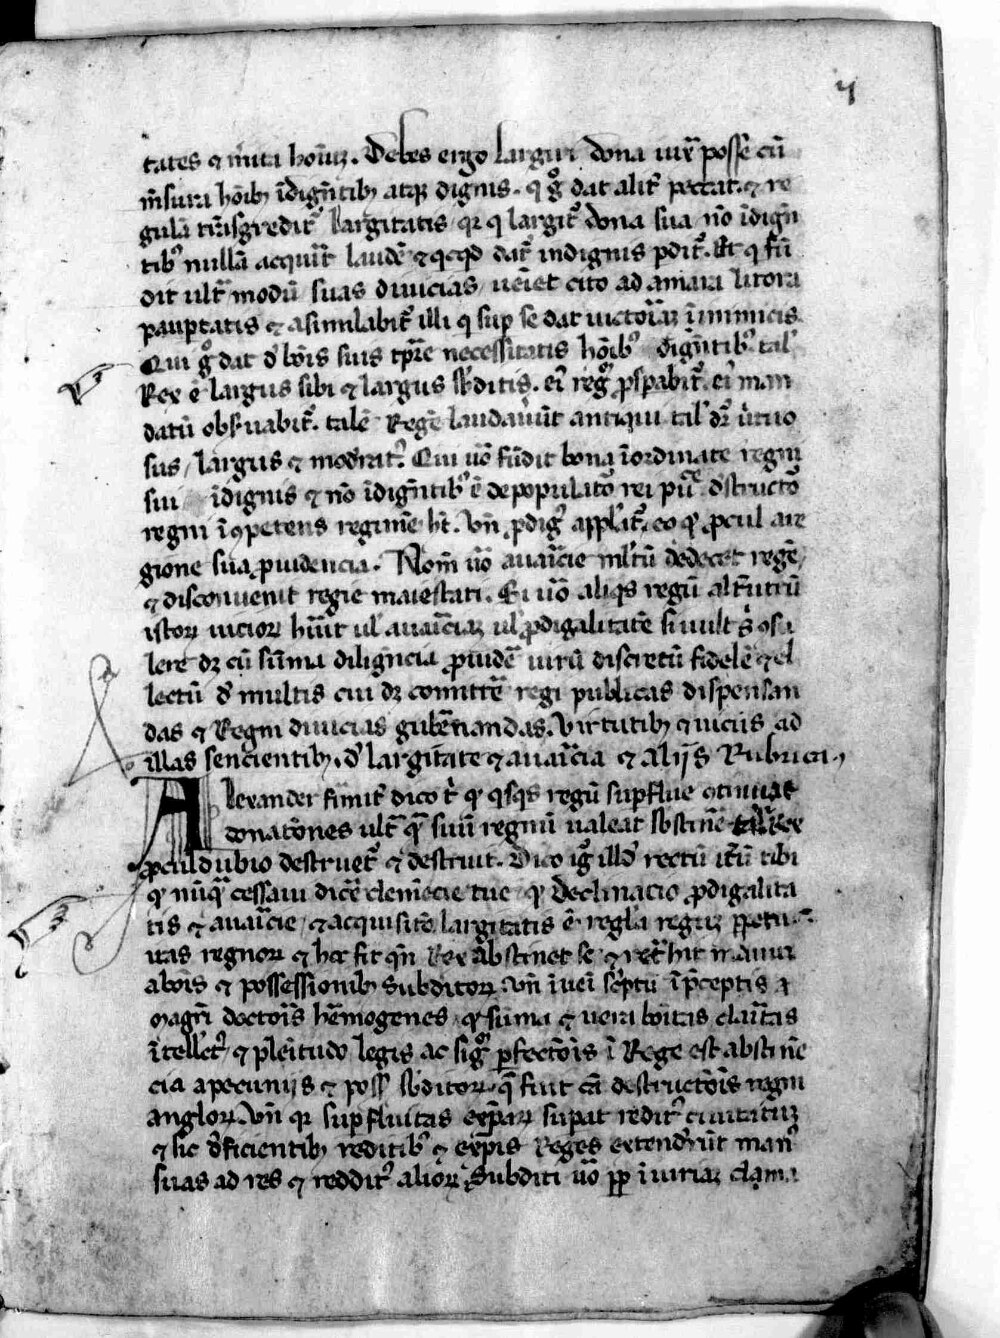 4
tates ⁊ mĩta hoĩuꝫ. Debes ergo largiri dona iuxᷓ posse cũ
m̃sura hõibꝫ ĩdigẽtibꝫ atqꝫ dignis. q gͦ dat alitˀ peccat. ⁊ re
gulã trãsgreditˀ largitatis qꝛ q largitˀ dona sua nõ ĩdigẽ
tibꝫ nullã acquirit laudẽ ⁊ qcqd datˀ indignis pditˀ. Et q fũ
dit ultᷓ modũ suas diuicias ueniet cito ad amara litora
paupertatis ⁊ asimilabitˀ illi q sup se dat uictoriã inimicis.
Qui gͦ dat dˀ bõis suis tp̃re necessitatis hõibꝫ ĩdigẽtibꝫ talˀ
Rex ẽ largus sibi ⁊ largus sb̃ditis. eiꝰ regnũ ꝓsperabitˀ. eiꝰ man
datũ obẜuabitˀ. talẽ Regẽ laudauerũt antiqui talˀ dr̃ uirtuo
sus, largus ⁊ moderatꝰ. Qui uõ fũdit bona ĩordinate regni
sui ĩdignis ⁊ nõ ĩdigẽtibꝫ ẽ depopulatoˀ rei pu.ᵉ dˀstructoˀ
regni ĩꝯpetens regimĩe ht̃. Vñ ꝓdigꝰ appellatˀ. eo ꝙ ꝓcul a re
gione sua ꝓuidencia. Nom̃ uõ auaricie ml̃tũ dedecet regẽ,
⁊ disconuenit regie maiestati. Si uõ aliqs regũ alterutrũ
istoꝝ uicioꝝ hũit ul̃ auariciaꝫ ul̃ ꝓdigalitatẽ si uult sˀ ꝯsu
lere dꝫ cũ sũma diligẽcia ꝓuidẽ uirũ discretũ fidelẽ ⁊ el
lectũ dˀ multis cui dꝫ comittẽ regi publicas dispensan
das ⁊ Regni diuicias gubernandas. Virtutibꝫ ⁊ uiciis ad
illas sencientibꝫ. dˀ largitate ⁊ auaricia ⁊ aliis Rubrica.
Alexander firmitˀ dico tˀ ꝙ qsqs regũ supflue ꝯtinuat
donatões ultᷓ qᷓ suũ regnũ ualeat sb̃stinẽ Rex
ꝓculdubio destruetˀ ⁊ destruit. Dico igͦ illdˀ rectũ iterũ tibi
ꝙ nũqᷓ cessaui dicẽ clemẽcie tue ꝙ declinacio ꝓdigalita
tis ⁊ auaricie, ⁊ acquisitõ largitatis ẽ regl̃a reguꝫ ꝑpetu
itas regnoꝝ ⁊ hec fit qñ Rex abstinet se ⁊ retᷓhit manus
a bõis ⁊ possessionibꝫ subditoꝝ. Vñ ĩueni sc̃ptũ ĩ p̃ceptis
magñi doctoris hermogenes, ꝙ sũma ⁊ uera bõitas claritas
ĩtellectꝰ ⁊ plenitudo legis ac signũ perfectõis ĩ Rege est abstinẽ
cia a pecuniis ⁊ poss̃ sb̃ditoꝝ. qᷓ fuit cã destructõis regni
angloꝝ. Vñ qꝛ supfluitas expẽsaꝝ supat reditꝰ ciuitatuꝫ
⁊ sic dˀficientibꝫ reditibꝫ ⁊ exp̃sis Reges extenderũt manꝰ
suas ad res ⁊ redditꝰ alioꝝ. Subditi uõ pp̃ iniuriaꝫ clama